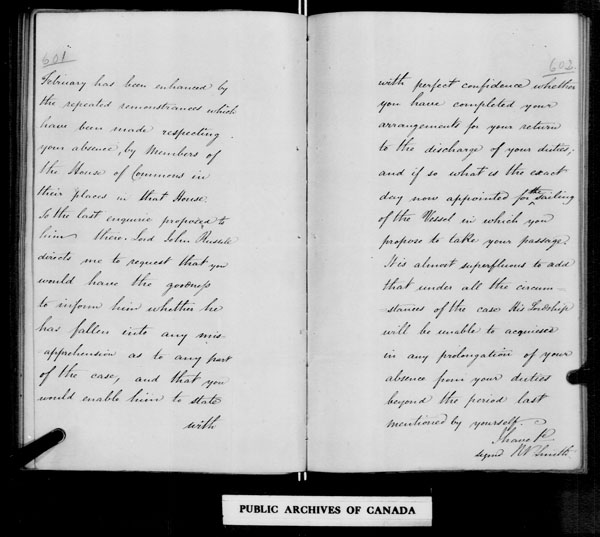 601
February has been enhanced by
the repeated remonstrances which
have been made respecting
your absence, by Members of
the House of Commons in
their places in that House.
To the last enquirie proposed to
him there. Lord John Russell
directs me to request that you
would have the goodness
to inform him whether he
has fallen into any mis-
apprehension as to any part
of the case, and that you
would enable him to state
with
602
with perfect confidence whether
you have completed your
arrangements for your return
to the discharge of your duties,
and if so what is the exact
day now appointed for the sailing
of the Vessel in which you
propose to take your passage?
It is almost superfluous to add
that under all the circum-
stances of the case His Lordship
will be unable to acquiesce
in any prolongation of your
absence from your duties
beyond the period last
mentioned by yourself.
I have &c
signed Smith
PUBLIC ARCHIVES OF CANADA